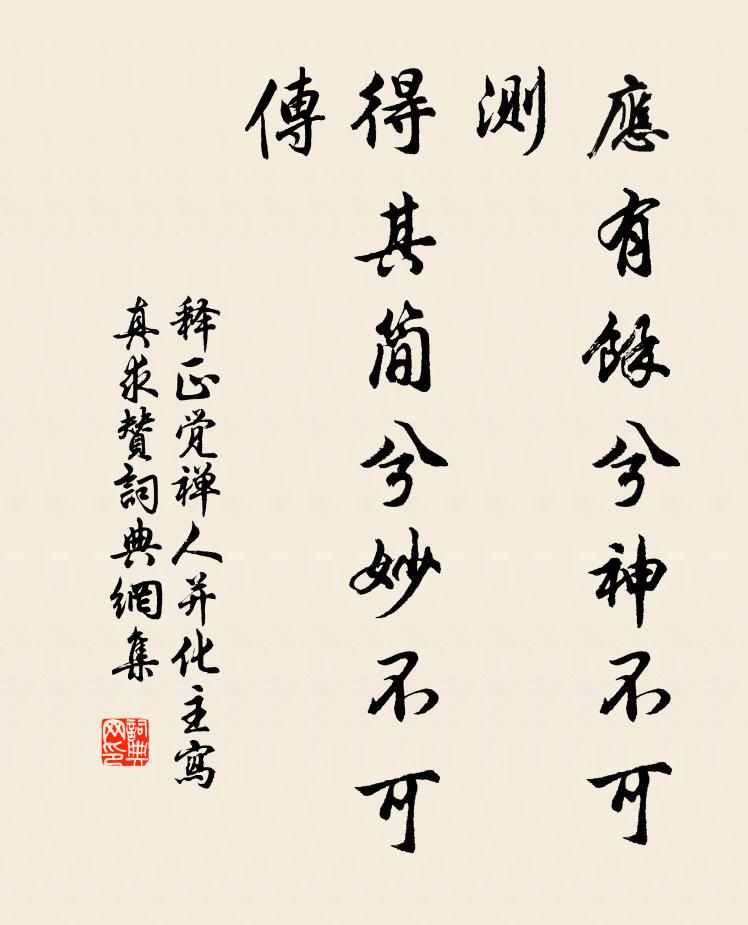 應有餘兮神不可
測
得其简兮妙不可
傳
释正覚禅人并化主寫
真求賛詞典網集
詞典
网印